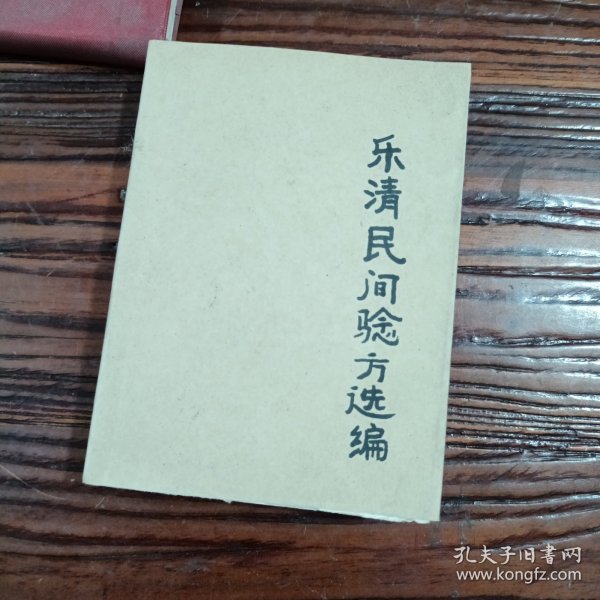 乐清民间验方选编
孔夫子旧书网
www.kongfz.com